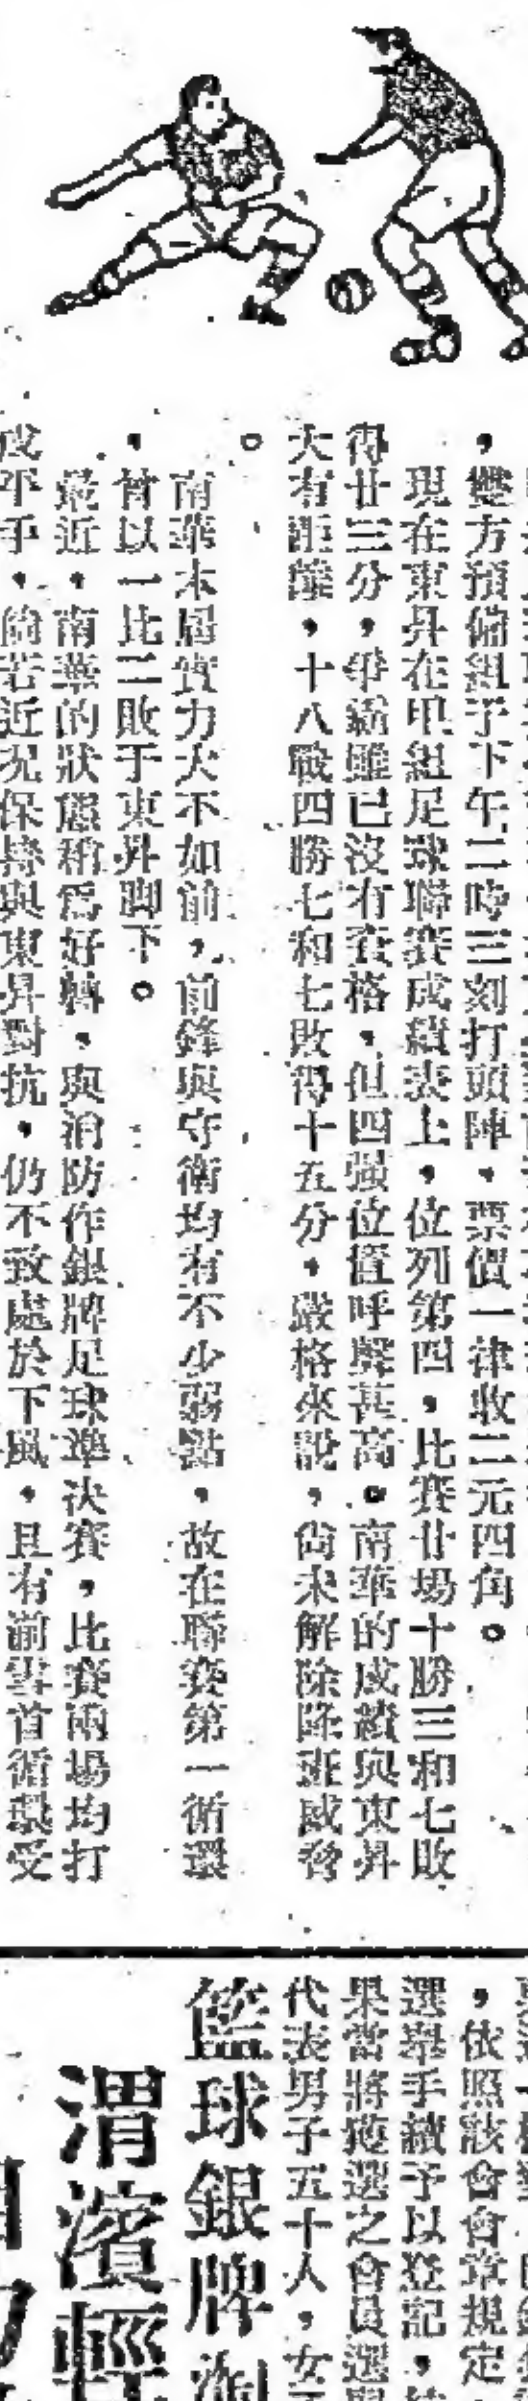 ，雙方預備組于下午二時三刻打頭陣，票價一律收二元四角。
現在東昇在甲組足球聯賽成績表上，位列第四，比賽廿場十勝三和七敗
得廿三分，爭霸雖已沒有資格，但四强位置呼聲甚高。南華的成績與東昇
大有距離，十八戰四勝七和七敗得十五分，嚴格來說，尙未解除降班威脅
。
南華本屆實力大不如前，前鋒與守衛均有不少弱點，故在聯賽第一循環
，曾以一比二敗于東昇脚下。
最近，南華的狀態稍爲好轉，與消防作銀牌足球準决賽，比賽兩場均打
成平手，倘若近況保持與東昇對抗，仍不致處於下風，且有前雪首循環受
，依照該會會章規定
選舉手續予以登記，
果當將獲選之會員選
代表男子五十人，女
籃球銀牌
渭濱輕